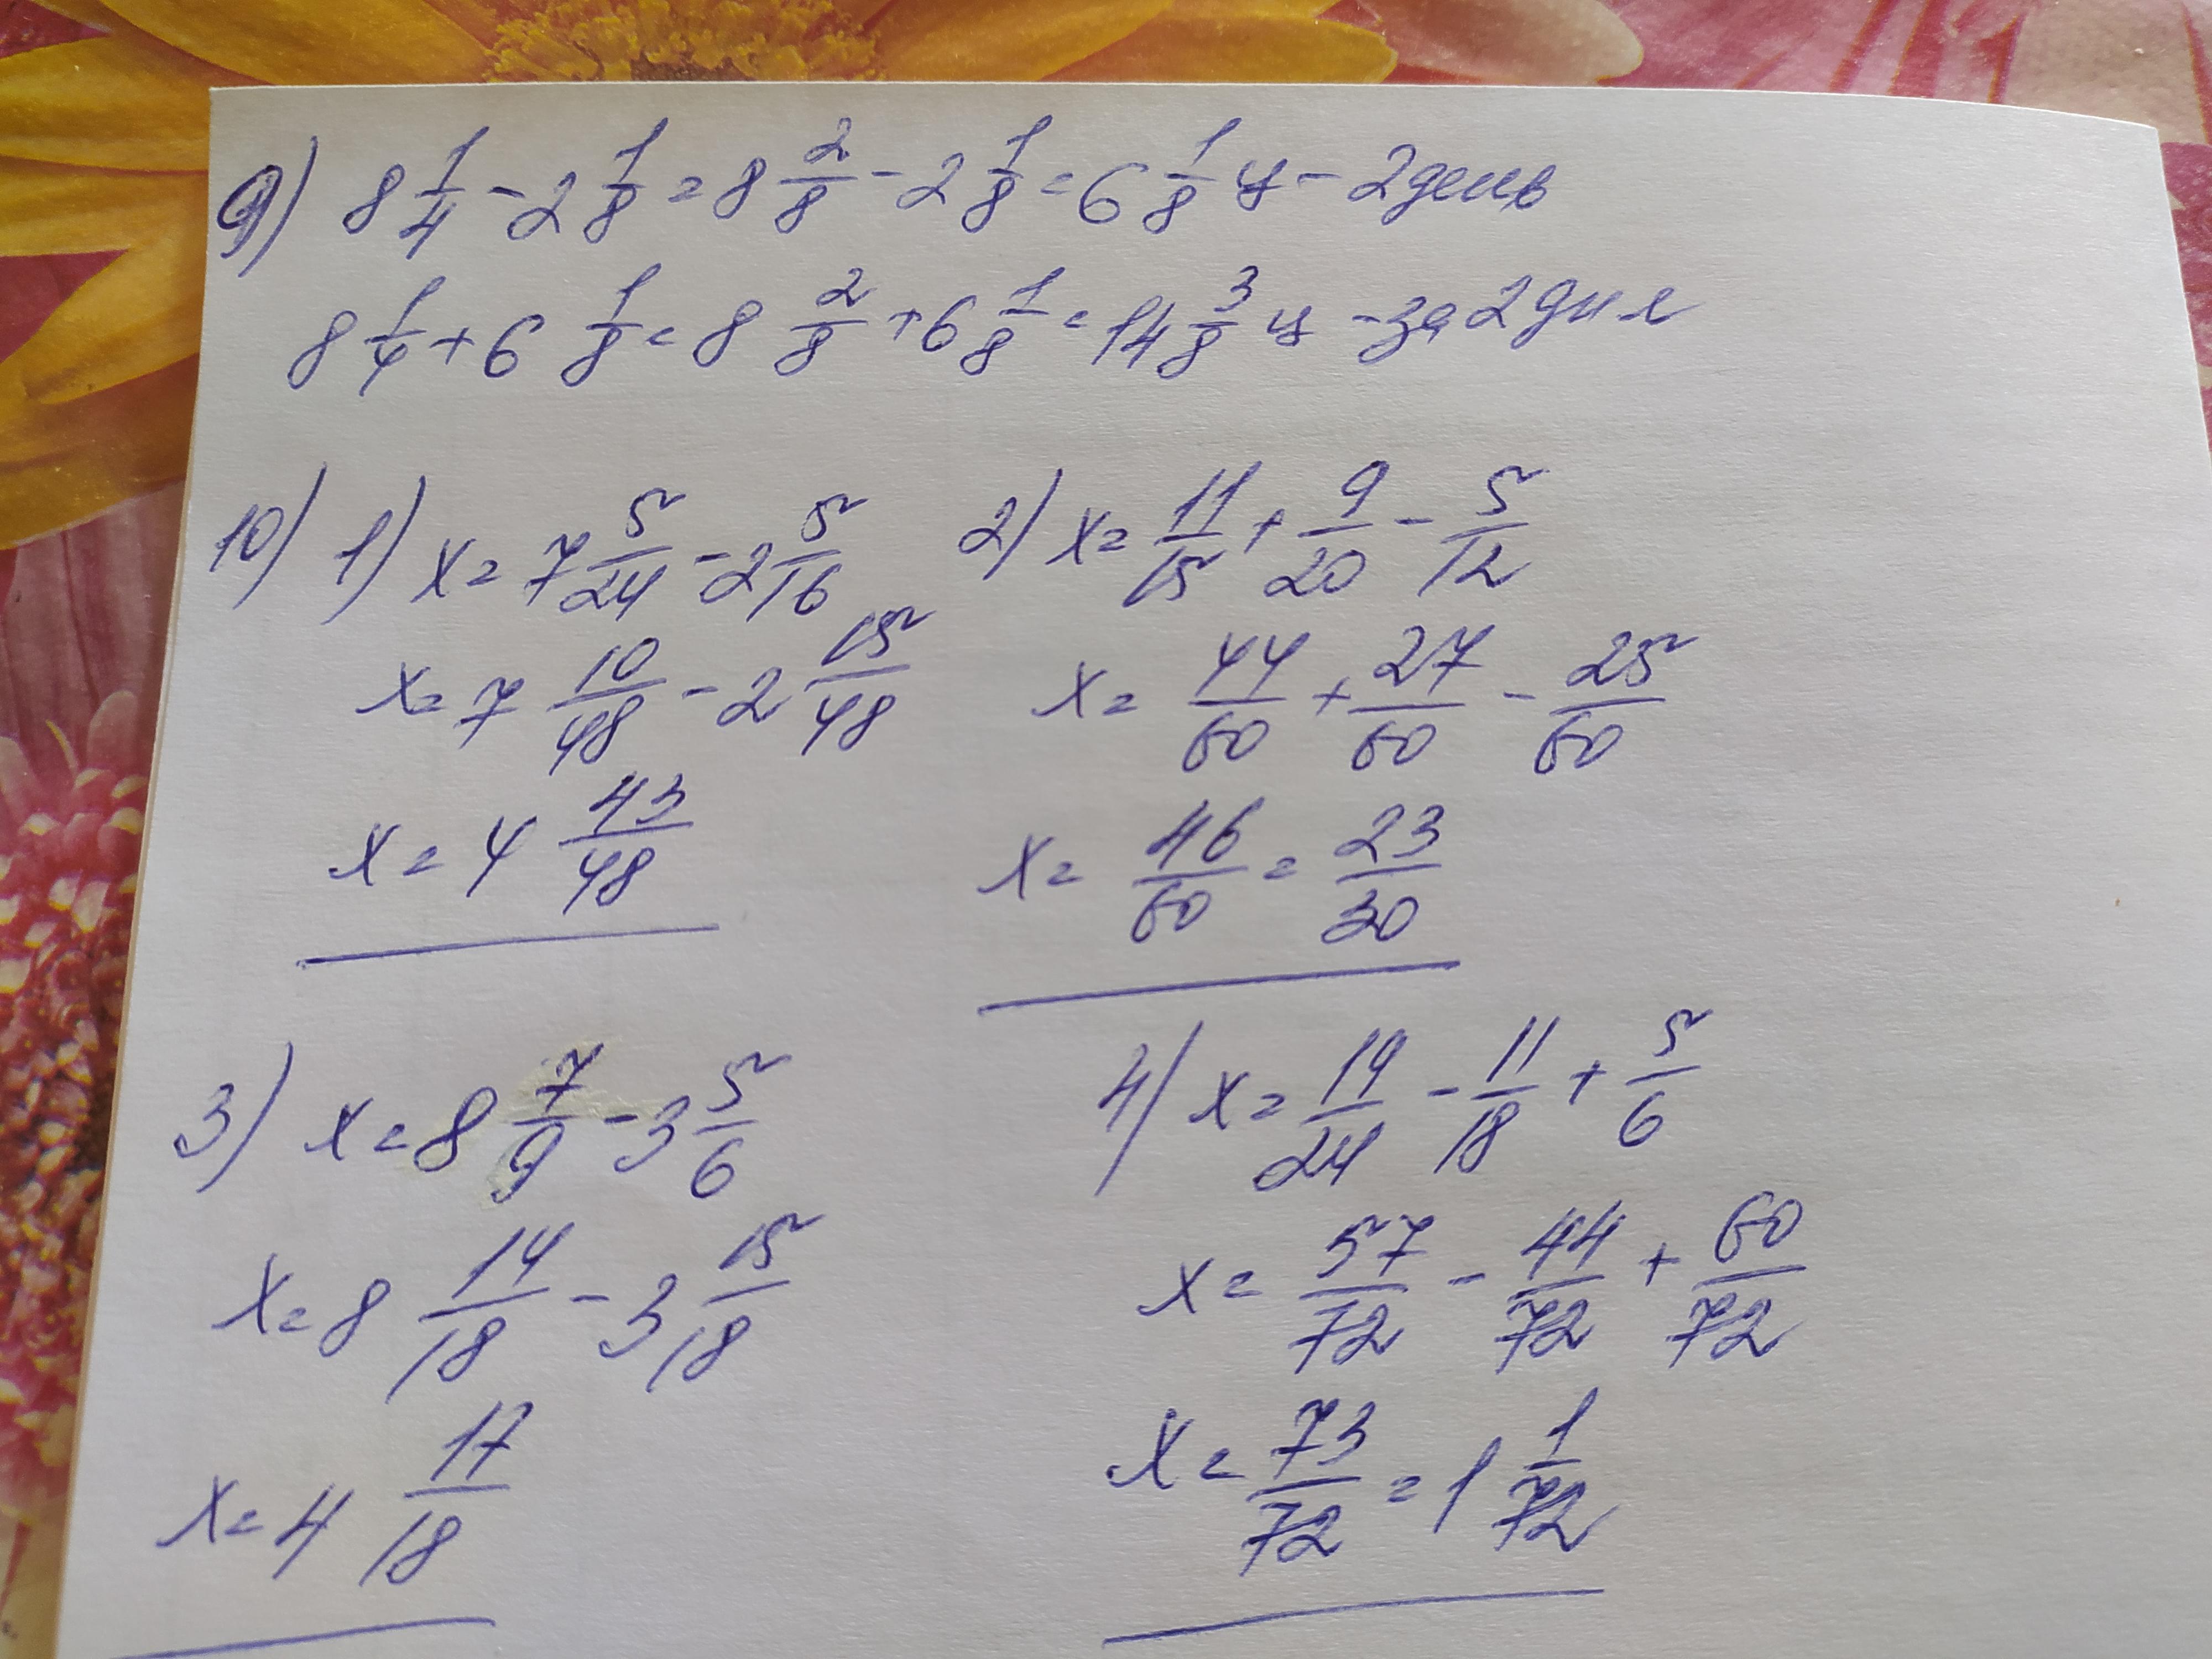 9) 8 1/4 - 2 1/8 = 8 2/8 - 2 1/8 = 6 1/8 ц - 2 день
8 1/4 + 6 1/8 = 8 2/8 + 6 1/8 = 14 3/8 ц - за 2 дня
10) 1) x = 7 5/24 - 2 5/16
x = 7 10/48 - 2 15/48
x = 4 43/48
2) x = 11/15 + 9/20 - 5/12
x = 44/60 + 27/60 - 25/60
x = 46/60 = 23/30
3) x = 8 7/9 - 3 5/6
x = 8 14/18 - 3 15/18
x = 4 17/18
4) x = 19/24 - 11/18 + 5/6
x = 57/72 - 44/72 + 60/72
x = 73/72 = 1 1/72